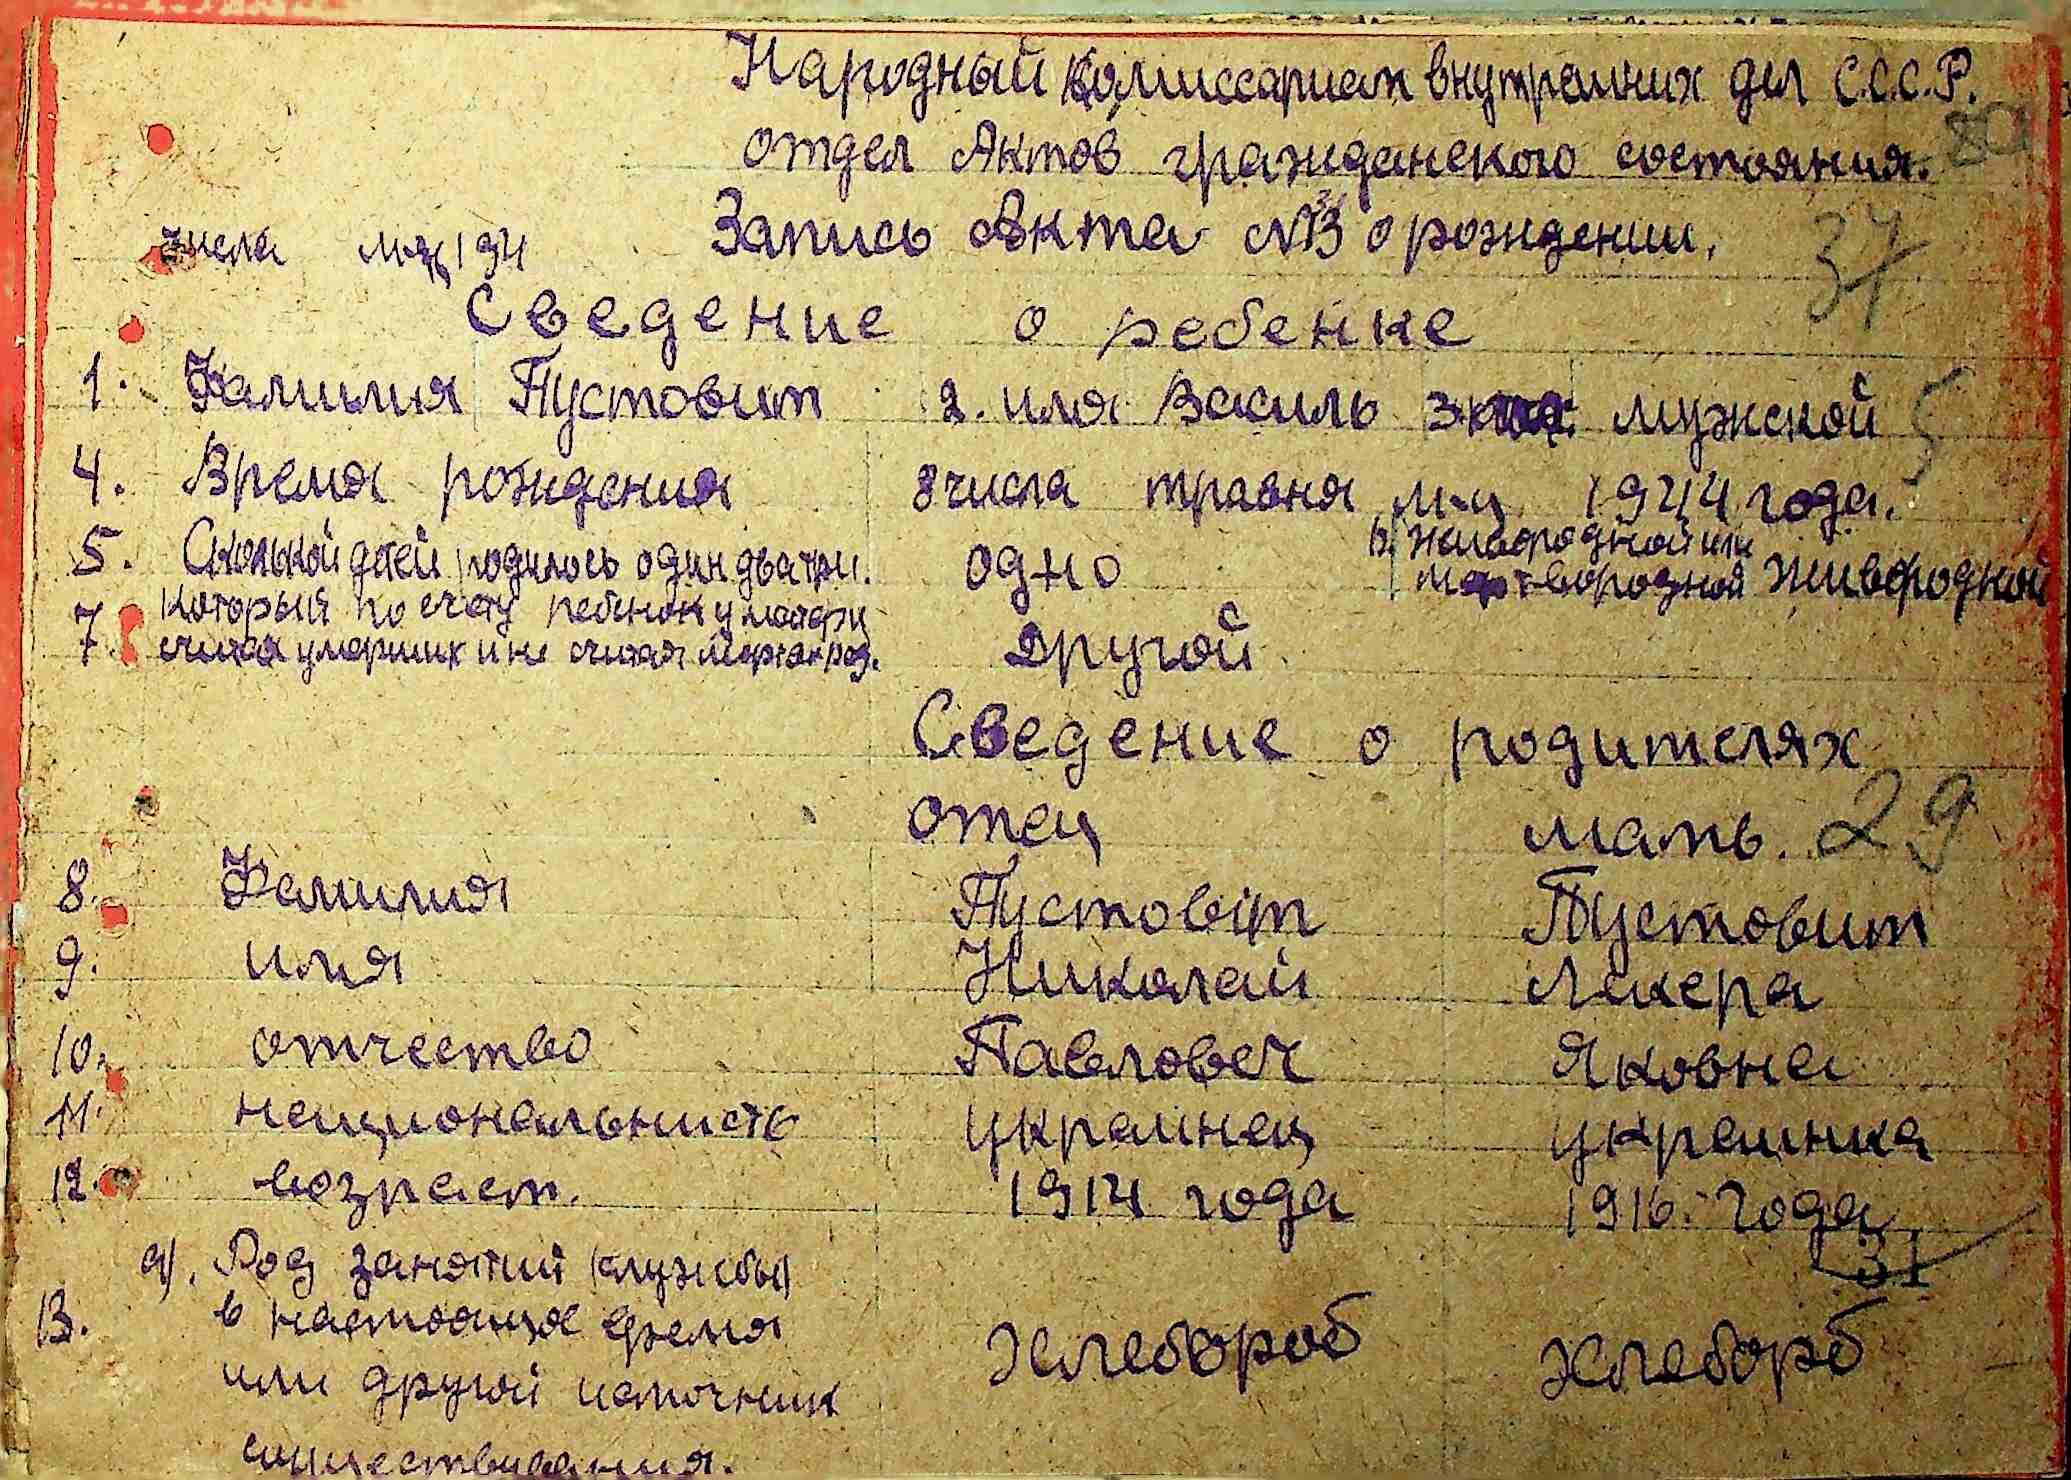 Народный комиссариат внутренних дел С.С.С.Р.
отдел Актов гражданского состояния.
Запись Акта №13 о рождении.
числа м-ц 194
37
Сведение о ребенке
1. Фамилия Пустовит 2. имя Василь 3. мужской
5
4. Время рождения 8 числа травня м-ц 1944 года.
5. Сколькой детей родилось один два три. одно 6) живородной или мертворозной живородной
7. Который по счету ребенок у матери считая умерших и не считая мертворож. Другой
Сведение о родителях
отец мать. 29
8. Фамилия Пустовіт Пустовит
9. имя Николай Лукера
10. отчество Павловеч Яковна
11. национальнисть украинец украинка
12. возраст. 1914 года 1916. года
31
а). Род занятий (службы)
13. в настоящое время хлебороб хлеборб
или другой источник
существования.